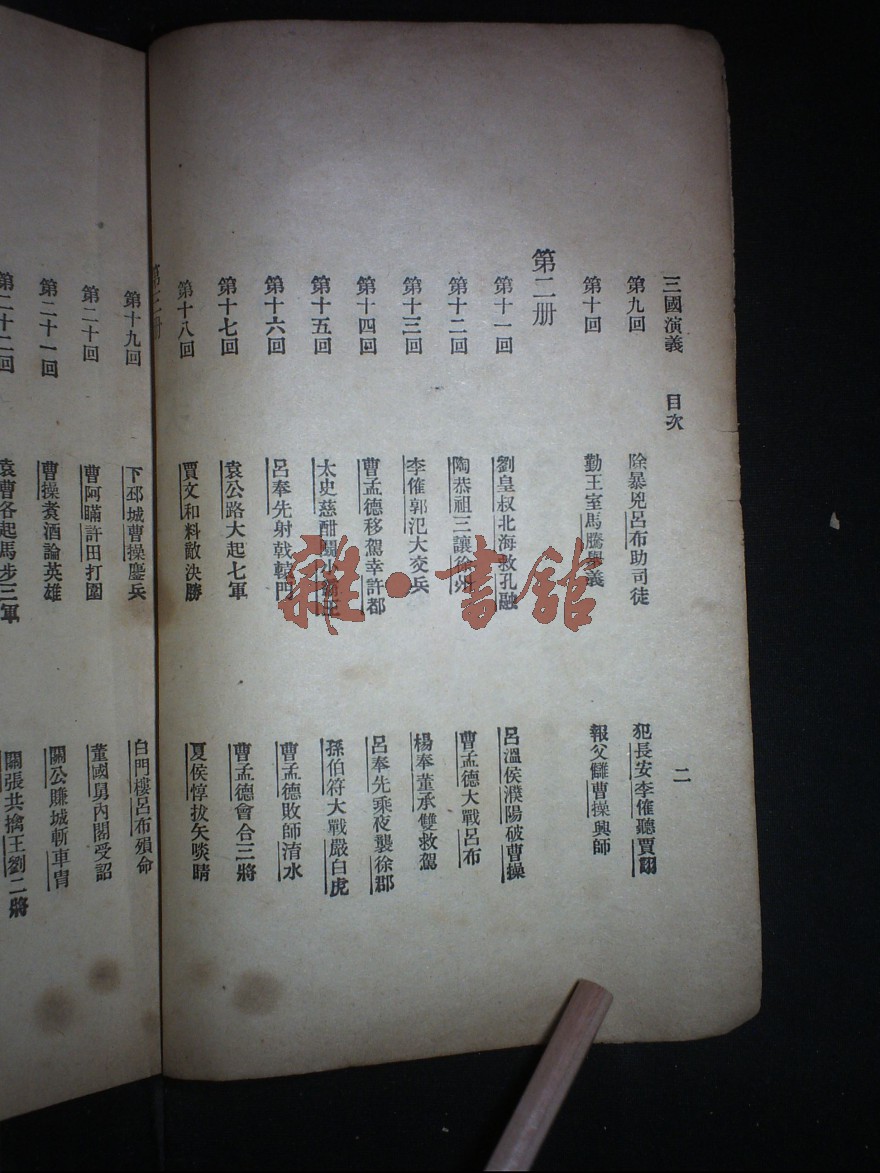 三國演義 目次 二
第九回 除暴兇呂布助司徒 犯長安李傕聽賈詡
第十回 勤王室馬騰舉義 報父讎曹操興師
第二册
第十一回 劉皇叔北海救孔融 呂溫侯濮陽破曹操
第十二回 陶恭祖三讓徐州 曹孟德大戰呂布
第十三回 李傕郭汜大交兵 楊奉董承雙救駕
第十四回 曹孟德移駕幸許都 呂奉先乘夜襲徐郡
第十五回 太史慈酣鬭小霸王 孫伯符大戰嚴白虎
第十六回 呂奉先射戟轅門 曹孟德敗師淯水
第十七回 袁公路大起七軍 曹孟德會合三將
第十八回 賈文和料敵決勝 夏侯惇拔矢啖睛
第三册
第十九回 下邳城曹操鏖兵 白門樓呂布殞命
第二十回 曹阿瞞許田打圍 董國舅內閣受詔
第二十一回 曹操煮酒論英雄 關公賺城斬車冑
第二十二回 袁曹各起馬步三軍 關張共擒王劉二將
雜·書館